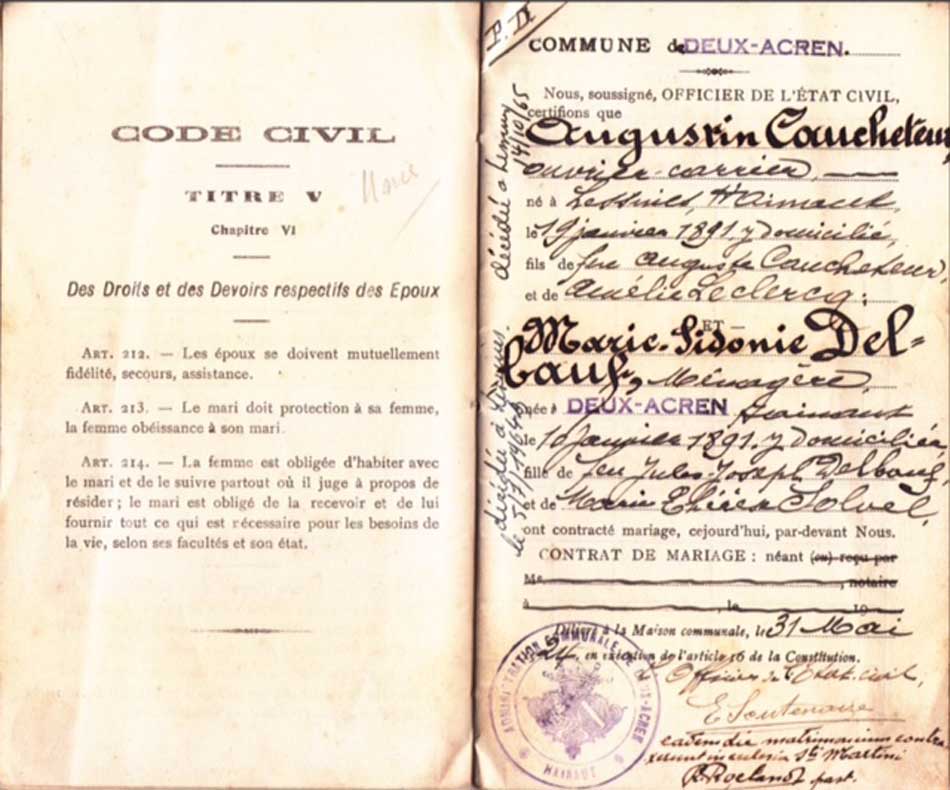 CODE CIVIL
TITRE V
Chapitre VI
Des Droits et des Devoirs respectifs des Epoux
ART. 212. — Les époux se doivent mutuellement
fidélité, secours, assistance.
ART. 213. — Le mari doit protection à sa femme,
la femme obéissance à son mari.
ART. 214. — La femme est obligée d'habiter avec
le mari et de le suivre partout où il juge à propos de
résider ; le mari est obligé de la recevoir et de lui
fournir tout ce qui est nécessaire pour les besoins de
la vie, selon ses facultés et son état.
P. II
COMMUNE de DEUX-ACREN.
Nous, soussigné, OFFICIER DE L'ÉTAT CIVIL,
certifions que
Augustin Caucheteur
ouvrier-carrier,
né à Lessines, Hainaut,
le 19 janvier 1891, y domicilié,
fils de feu Auguste Caucheteur,
et de Amélie Leclercq ;
— ET —
Marie-Sidonie Del=
bauf, Ménagère,
née à DEUX-ACREN Hainaut
le 10 janvier 1891, y domiciliée,
fille de feu Jules-Joseph Delbauf,
et de Marie Solvel,
ont contracté mariage, cejourd'hui, par-devant Nous.
CONTRAT DE MARIAGE : néant (ou) reçu par
Me , notaire
à , le 19
Délivré à la Maison communale, le 31 Mai
24, en exécution de l'article 16 de la Constitution.
L'Officier de l'Etat-civil,
eadem die matrimonium contra
xerunt in ecclesia Sti Martini
past.
décédé à 14/10/65
décédée à Lessines
le
ADMINISTRATION COMMUNALE DE DEUX-ACREN
HAINAUT